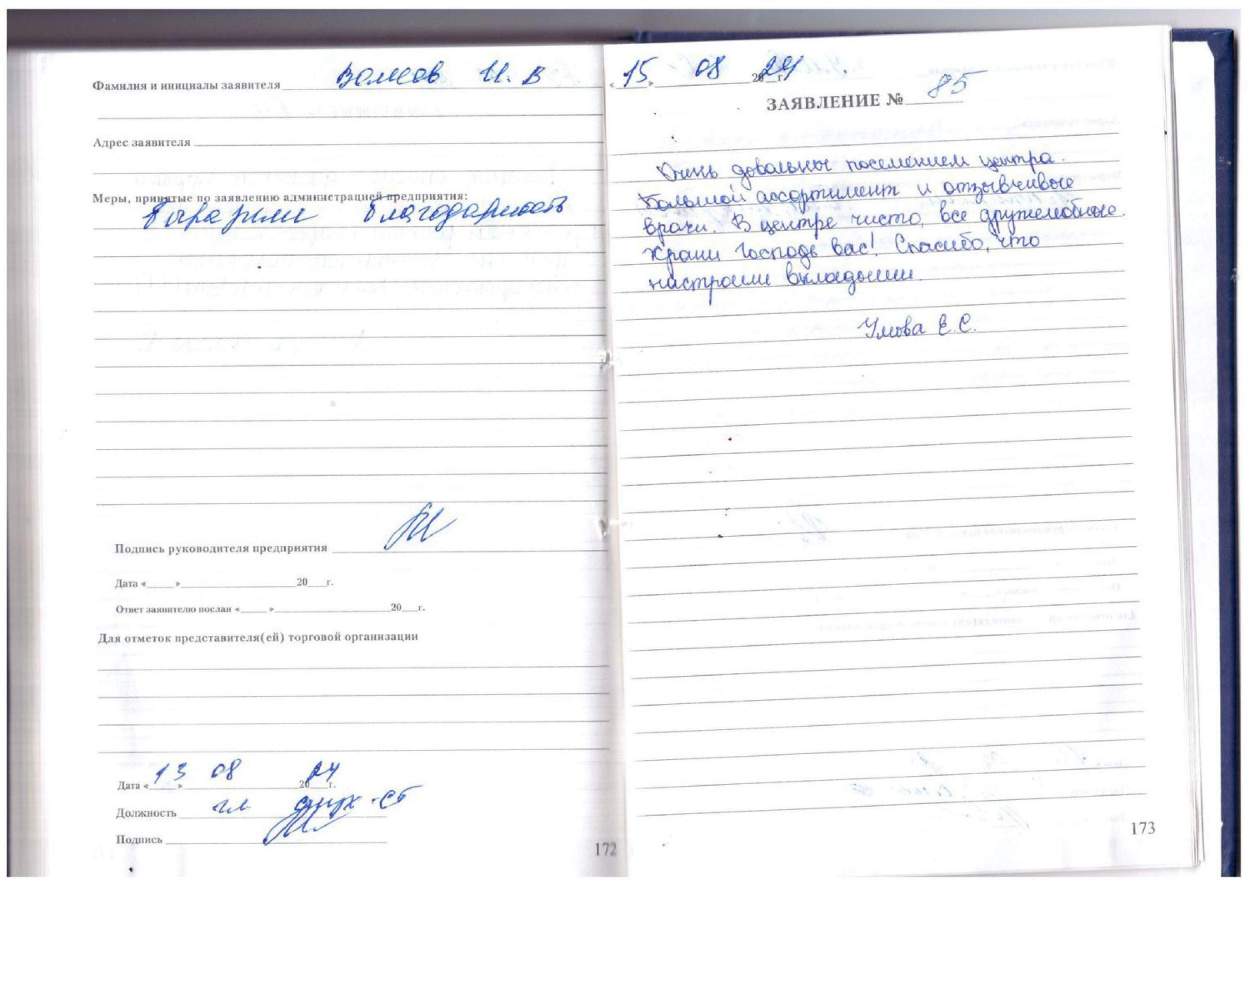 Фамилия и инициалы заявителя Волков И. В
Адрес заявителя
Меры, принятые по заявлению администрацией предприятия:
Выразили благодарность
Подпись руководителя предприятия
Дата «____» ____ 20__г.
Ответ заявителю послан «____» ____ 20__г.
Для отметок представителя(ей) торговой организации
Дата « 13 » 08 2024 г.
Должность гл
Подпись
172
« 15 » 08 2024 г.
ЗАЯВЛЕНИЕ № 85
Очень довольны посещением центра.
Большой ассортимент и отзывчивые
врачи. В центре чисто, все дружелюбные.
Храни Господь вас! Спасибо, что
настроили вкладыши.
Умова Е. С.
173